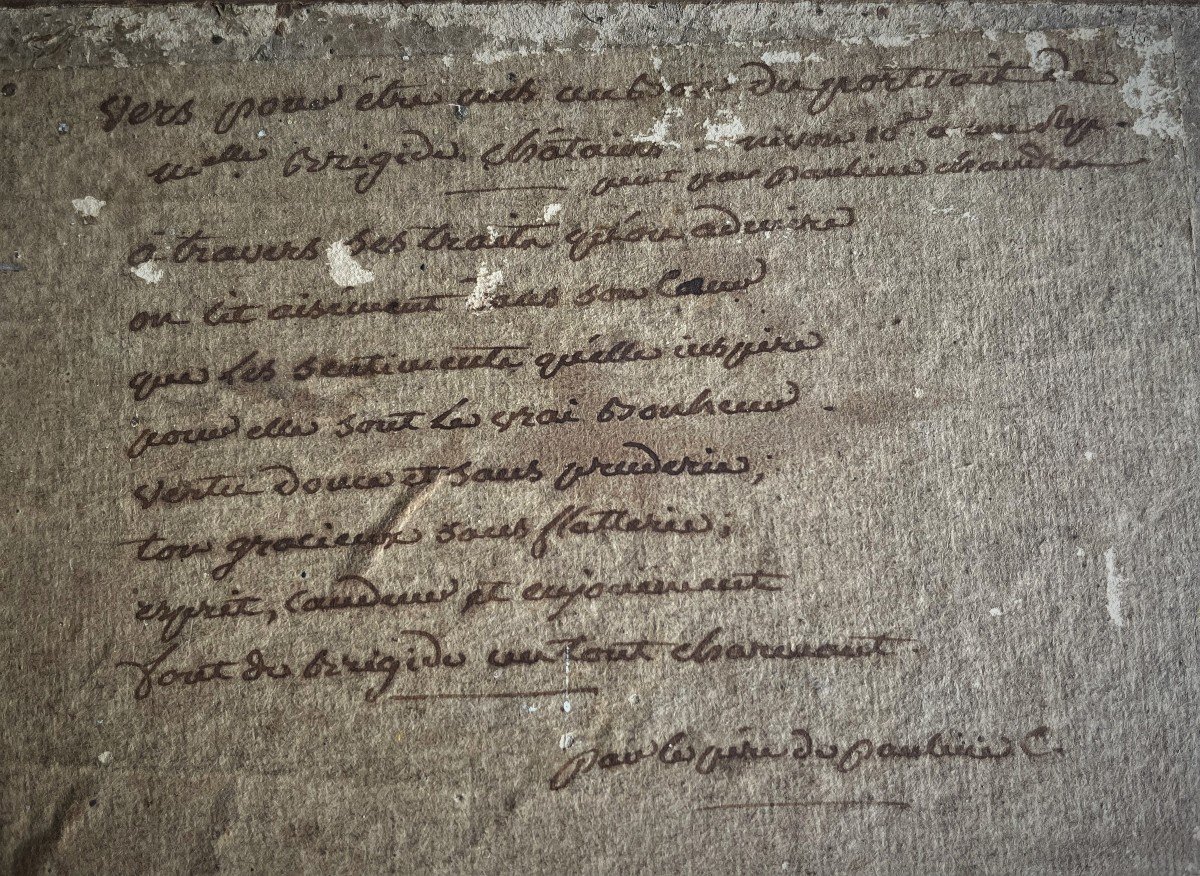 vers pour être mis au bas du portrait de
melle. Brigide Châtain. nivose 10e
peint par pauline chaudr
à travers ses traits qu'hon admire
on lit aisément dans son Cœur
que les sentiments qu'elle inspire
pour elle sont le vrai Bonheur.
vertu douce et sans pruderie;
ton gracieux sans flatterie;
esprit, Candeur et enjouement
font de Brigide un tout charmant.
par le père de pauline C.